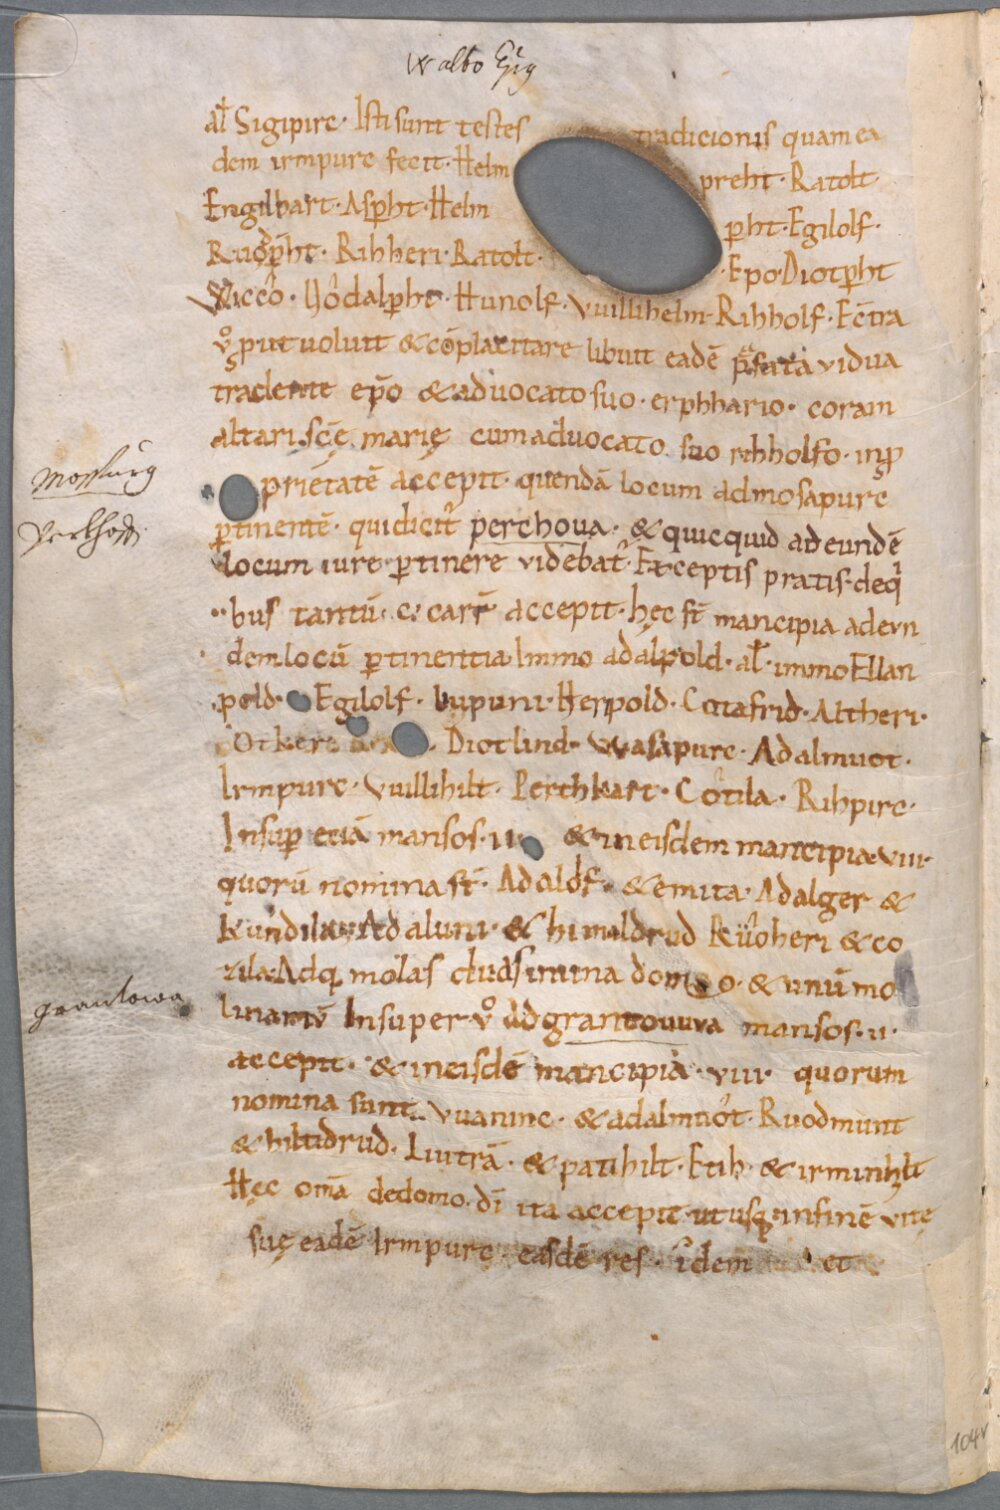 Walbo Ep̃s
al̵ Sigipirc· Isti sunt testes tradicionis quam ea
dem irmpurc fecit· Helm preht· Ratolt·
Engilhart· Asp̱ht· Helm p̱ht· Egilolf·
Ruodp̱ht· Rihheri· Ratolt· · Epo· Diotp̱ht
Wicco· Uodalp̱ht· Hunolf· Vuillihelm· Rihholf· Ec̄tra
put uoluit & cōplacitare libuit eadē vidua
tradente ep̄o & aduocato suo· erphhario· coram
altari sc̄ę marię cum aduocato suo rihholfo· in p̱
prietatē accepit· quendā locum ad mosapurc
p̱tinentē· qui dicit̄ perchoua· & quicquid ad eundē
locum iure p̱tinere videbat̄· Exceptis pratis· de q̄
bus tantū· c· carr̄ accepit· hęc st̄ mancipia ad evn
dem locū p̱tinentia· Immo adalpold· al̵· immo Ellan
pold· Egilolf· lupuni· Herpold· Cotafrid· Altheri·
Otkere · Diotlind· Wasapurc· Adalmuot·
Irmpurc· Vuillihilt· Perthkart· Cotila· Rihpirc·
Insup̱ etiā mansos· II· & in eisdem mancipia· VIII·
quorū nomina st̄· Adalolf· & emita· Adalger &
Kundila· Adaluni· & himildrud Kuoheri & co
zila· Adq; molas duas in ina domo· & unū mo
linariū Insuper ad grantouuva mansos· II·
accepit· & in eisdē mancipia· VIII· quorum
nomina sunt· Vuaninc· & adalmuot· Ruodmunt
& hiltidrud· Liutrā· & patihilt· Etih· & irminhilt
Hęc om̄a de domo· dī ita accepit· ut usq; in finē vitę
suę eadē Irmpurc easdē res· idem et
Mosburg
Perkhoff
grantowa
104v